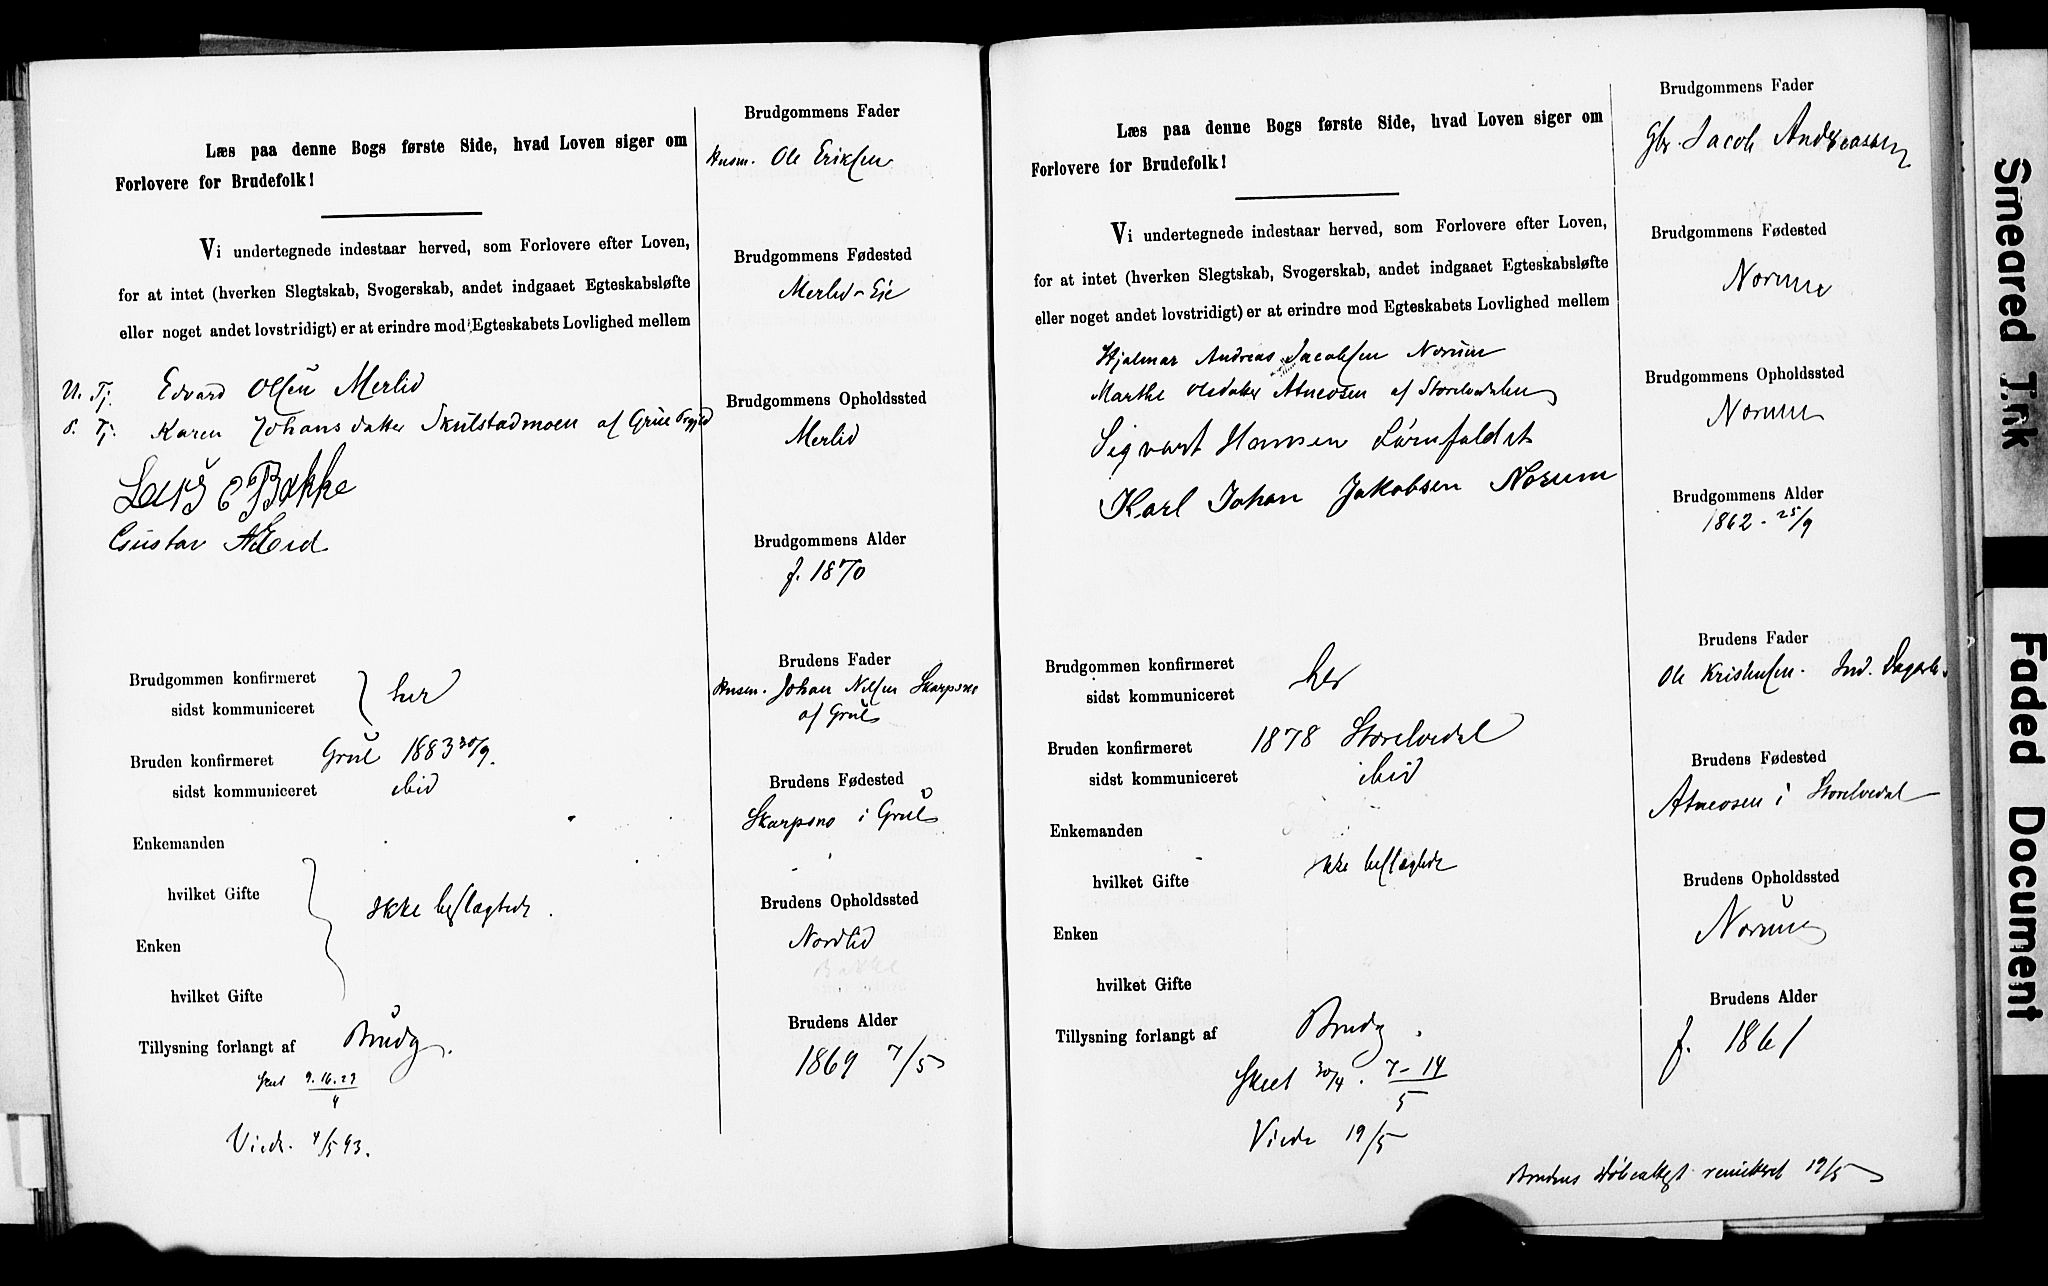 Læs paa denne Bogs første Side, hvad Loven siger om
Forlovere for Brudefolk!
Vi undertegnede indestaar herved, som Forlovere efter Loven,
for at intet (hverken Slegtskab, Svogerskab, andet indgaaet Egteskabsløfte
eller noget andet lovstridigt) er at erindre mod Egteskabets Lovlighed mellem
U. Tj. Edvard Olsen Merlid
P. Tj. Karen Johansdatter Skulstadmoen af Grue
Lars E Bakke
Gustav A Eid
Brudgommen konfirmeret
sidst kommuniceret
her
Bruden konfirmeret Grue 1883 30/9.
sidst kommuniceret ibid
Enkemanden
hvilket Gifte
Ikke beslægtede.
Enken
hvilket Gifte
Tillysning forlangt af Brudg.
Skeet 9.16.23
4
Viede. 4/5 93.
Brudgommens Fader
Husm. Ole Eriksen
Brudgommens Fødested
Merlid-Eie
Brudgommens Opholdssted
Merlid
Brudgommens Alder
f. 1870
Brudens Fader
Husm. Johan Nilsen Skarpsno
af Grue
Brudens Fødested
Skarpsno i Grue
Brudens Opholdssted
Nordlid
Bakke
Brudens Alder
1869 7/5
Læs paa denne Bogs første Side, hvad Loven siger om
Forlovere for Brudefolk!
Vi undertegnede indestaar herved, som Forlovere efter Loven,
for at intet (hverken Slegtskab, Svogerskab, andet indgaaet Egteskabsløfte
eller noget andet lovstridigt) er at erindre mod Egteskabets Lovlighed mellem
Hjalmar Andreas Jacobsen Norum
Marthe Olsdatter Atneosen af Storelvedalen
Sigvart Hansen Lørnfaldet
Karl Johan Jakobsen Norum
Brudgommen konfirmeret
sidst kommuniceret
her
Bruden konfirmeret 1878 Storelvedal
sidst kommuniceret ibid
Enkemanden
hvilket Gifte
Ikke beslægtede
Enken
hvilket Gifte
Tillysning forlangt af Brudg.
Skeet 30/4. 7-14
5
Viede 19/5
Brudens Døbeattest remitteret 19/5
Brudgommens Fader
Gbr. Jacob Andreassen
Brudgommens Fødested
Norum
Brudgommens Opholdssted
Norum
Brudgommens Alder
1862 - 25/9
Brudens Fader
Ole Kristensen. Ind.
Brudens Fødested
Atneosen i Storelvedal
Brudens Opholdssted
Norum
Brudens Alder
f. 1861
Smeared Ink
Faded Document